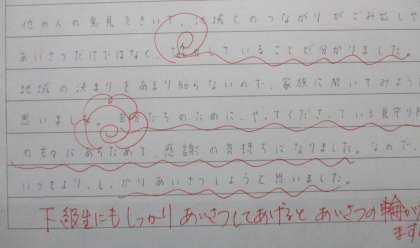 他の人の発見をきいて、地域とのつながりがごみ出しや
あいさつだけではなく、していることが分かりました。
地域の決まりをあまり知らないので、家族に聞いてみよう
思いました。たちのために、やってくださっている見守り
のものにあらためて、感謝の気持ちになりました。なので、
いつもより、しっかりあいさつしようと思いました。
下級生にもしっかりあいさつしてあげると あいさつの輪が
ます